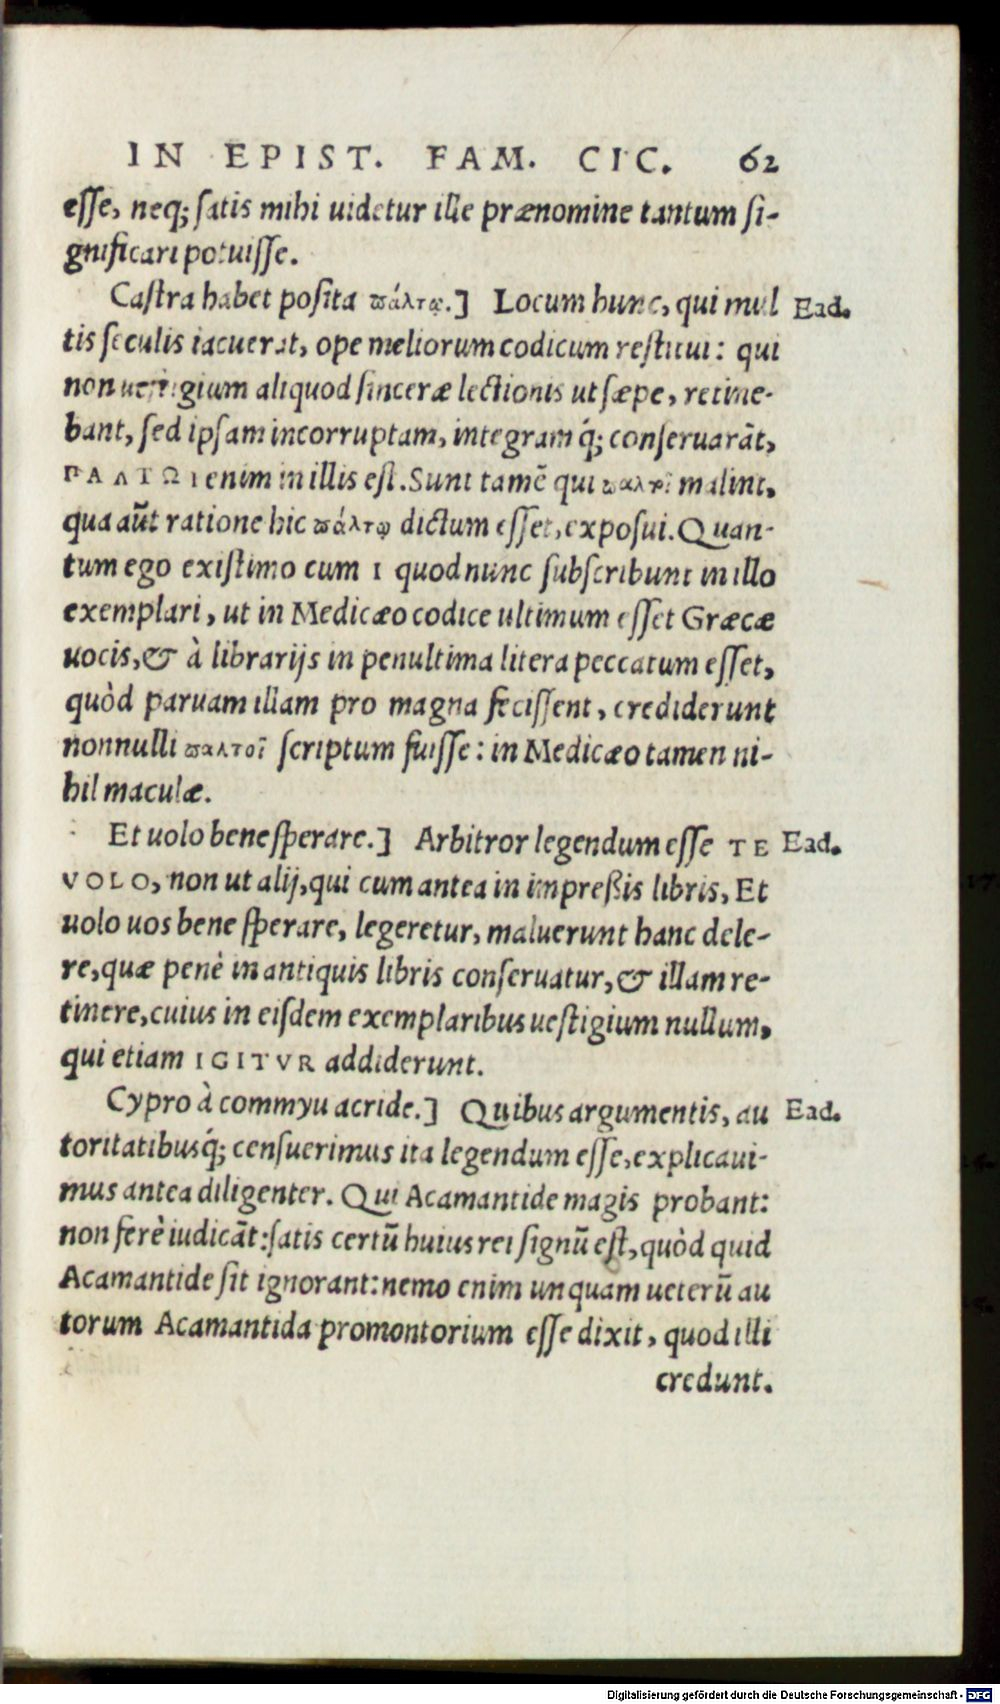 IN EPIST. FAM. CIC. 62
esse, neq; satis mihi uidetur ille prænomine tantum si-
gnificari potuisse.
Castra habet posita πάλτῳ.] Locum hunc, qui mul Ead.
tis seculis iacuerat, ope meliorum codicum restitui: qui
non uestigium aliquod sinceræ lectionis ut sæpe, retine-
bant, sed ipsam incorruptam, integram q́; conseruarāt,
ΠΑΛΤΩΙ enim in illis est. Sunt tamē qui παλτοῖ malint,
qua aūt ratione hic πάλτῳ dictum esset, exposui. Quan-
tum ego existimo cum ι quod nunc subscribunt in illo
exemplari, ut in Medicæo codice ultimum esset Græcæ
uocis, & à librarijs in penultima litera peccatum esset,
quòd paruam illam pro magna fecissent, crediderunt
nonnulli παλτοῖ scriptum fuisse: in Medicæo tamen ni-
hil maculæ.
Et uolo bene sperare.] Arbitror legendum esse TE Ead.
VOLO, non ut alij, qui cum antea in impreßis libris, Et
uolo uos bene sperare, legeretur, maluerunt hanc dele-
re, quæ penè in antiquis libris conseruatur, & illam re-
tinere, cuius in eisdem exemplaribus uestigium nullum,
qui etiam IGITVR addiderunt.
Cypro à commyu acride.] Quibus argumentis, au Ead.
toritatibusq́; censuerimus ita legendum esse, explicaui-
mus antea diligenter. Qui Acamantide magis probant:
non ferè iudicāt: satis certū huius rei signū est, quòd quid
Acamantide sit ignorant: nemo enim unquam ueterū au
torum Acamantida promontorium esse dixit, quod illi
credunt.
Digitalisierung gefördert durch die Deutsche Forschungsgemeinschaft - DFG